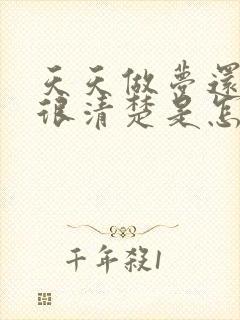 天天做夢還
很清楚是怎
千年殺1